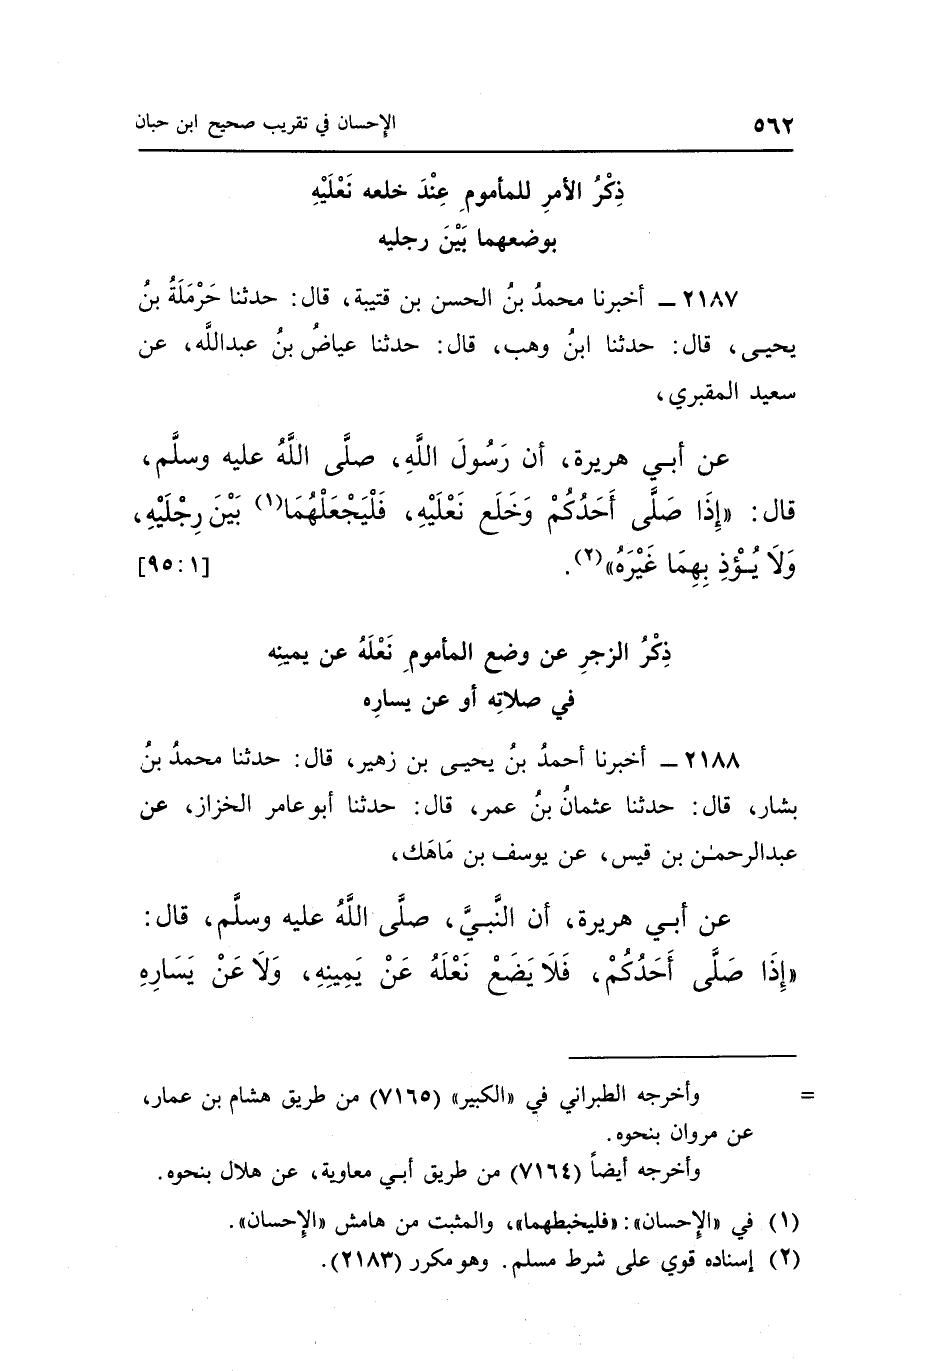 ٥٦٢ الإحسان في تقريب صحيح ابن حبان
ذِكْرُ الأمرِ للمأمومِ عِنْدَ خلعه نَعْلَيْهِ
بوضعهما بَيْنَ رجليه
٢١٨٧ ـ أخبرنا محمدُ بنُ الحسن بن قتيبة، قال: حدثنا حَرْمَلَةُ بنُ
يحيى، قال: حدثنا ابنُ وهب، قال: حدثنا عياضُ بنُ عبدالله، عن
سعيد المقبري،
عن أبي هريرة، أن رَسُولَ اللَّهِ، صلَّى اللَّهُ عليه وسلَّم،
قال: «إِذَا صَلَّى أَحَدُكُمْ وَخَلَعَ نَعْلَيْهِ، فَلْيَجْعَلْهُمَا(١) بَيْنَ رِجْلَيْهِ،
وَلَا يُؤْذِ بِهِمَا غَيْرَهُ»(٢). [١:٩٥]
ذِكْرُ الزجرِ عن وضع المأمومِ نَعْلَهُ عن يمينِه
في صلاتِه أو عن يسارِه
٢١٨٨ ـ أخبرنا أحمدُ بنُ يحيى بن زهير، قال: حدثنا محمدُ بنُ
بشار، قال: حدثنا عثمانُ بنُ عمر، قال: حدثنا أبو عامر الخزاز، عن
عبدالرحمٰن بن قيس، عن يوسف بن مَاهَك،
عن أبي هريرة، أن النَّبيَّ، صلَّى اللَّهُ عليه وسلَّم، قال:
«إِذَا صَلَّى أَحَدُكُمْ، فَلَا يَضَعْ نَعْلَهُ عَنْ يَمِينِهِ، وَلَا عَنْ يَسَارِهِ
= وأخرجه الطبراني في «الكبير» (٧١٦٥) من طريق هشام بن عمار،
عن مروان بنحوه.
وأخرجه أيضاً (٧١٦٤) من طريق أبي معاوية، عن هلال بنحوه.
(١) في «الإحسان»: «فليخبطهما»، والمثبت من هامش «الإحسان».
(٢) إسناده قوي على شرط مسلم. وهو مكرر (٢١٨٣).